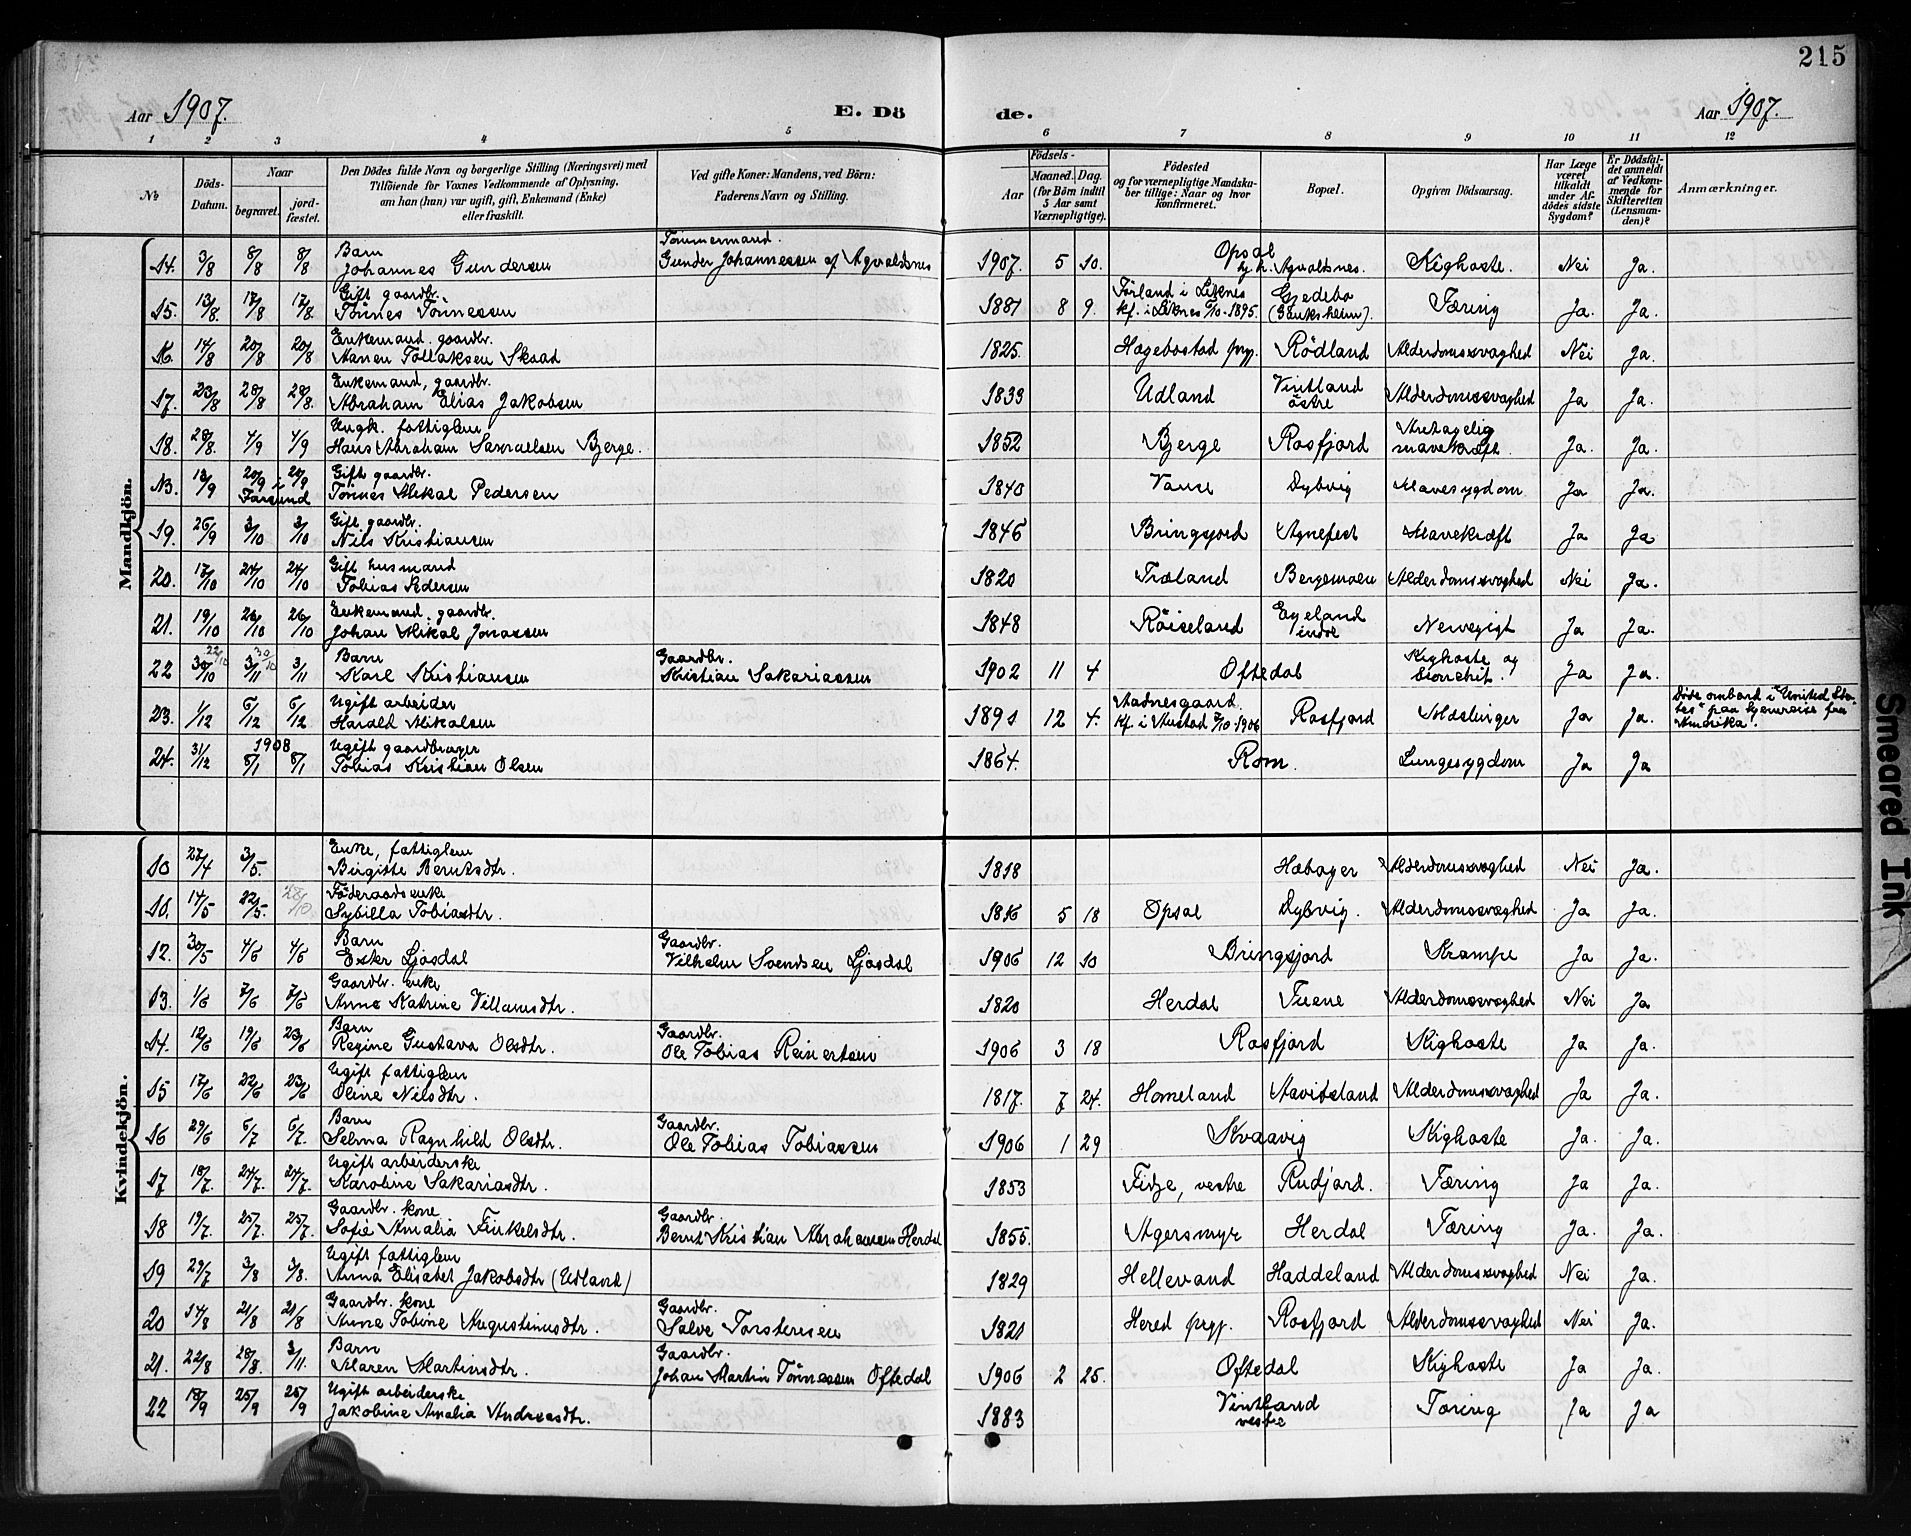 215
Aar 1907. E. Dö de. Aar 1907.
1 2 3 4 5 6 7 8 9 10 11 12
№ Döds-Datum. Naar begravet. jordfæstet. Den Dödes fulde Navn og borgerlige Stilling (Næringsvei) med Tilföiende for Voxnes Vedkommende af Oplysning, om han (hun) var ugift, gift, Enkemand (Enke) eller fraskilt. Ved gifte Koner: Mandens, ved Börn: Faderens Navn og Stilling. Födsels- Aar Maaned. Dag. (for Börn indtil 5 Aar samt Værnepligtige). Födested og for værnepligtige Mandskaber tillige: Naar og hvor konfirmeret. Bopæl. Opgiven Dödsaarsag. Har Læge været tilkaldt under Afdödes sidste Sygdom? Er Dödsfaldet anmeldt af Vedkommende for Skifteretten (Lensmanden)? Anmærkninger.
Mandkjön.
14. 3/8 8/8 8/8 Barn Johannes Gundersen Tömmermand. Gunder Johannessen af Agvaldsnes 1907. 5 10. Opsal hj. h. Agvaldsnes. Kighoste. Nei Ja.
15. 13/8. 17/8 17/8. Gift gaardbr. Tönnes Tönnessen 1881 8 9. Förland i Liknes kf. i Liknes 6/10-1895. Gjedebo Tæring Ja Ja.
16. 14/8 20/8 20/8 Enkemand. gaardbr. Aanen Tollaksen Skaad 1825. Hægebostad prgj. Rödland Alderdomssvaghed Nei Ja.
17. 23/8 28/8 28/8. Enkemand, gaardbr. Abraham Elias Jakobsen 1833 Udland Vintland östre Alderdomssvaghed Ja Ja.
18. 28/8. 4/9 4/9 Ungk. fattiglem Hans Abraham Samuelsen Bjerge. 1852 Bjerge Rosfjord Antagelig mavekræft. Ja. Ja.
13/9 20/9 i Farsund 20/9 Gift gaardbr. Tönnes Mikal Pedersen 1840 Vanse Dybvig Mavesygdom Ja Ja.
19. 26/9 3/10 3/10 Gift gaardbr. Nils Kristiansen 1846 Bringsjord Agnefest Mavekræft Ja Ja
20. 17/10 24/10 24/10 Gift husmand Tobias Pedersen 1820 Træland Bergemoen Alderdomssvaghed Nei Ja.
21. 19/10 26/10 26/10 Enkemand. gaardbr. Johan Mikal Jonassen 1848 Röiseland Egeland indre Nervegigt Ja Ja.
22 30/10 22/10 3/11 30/10 3/11 Barn Karl Kristiansen Gaardbr. Kristian Sakariassen 1902 11 4 Oftedal Kighoste og Bronchit. Ja Ja.
23. 1/12 6/12 6/12 Ugift arbeider Harald Mikalsen 1891 12 4. Aadnesgaard. kf. i Austad 7/10-1906 Rosfjord Mæslinger Ja Ja. Döde ombord i "United States" paa hjemreise fra Amerika.
24. 31/12 1908 8/1 8/1 Ugift gaardbruger Tobias Kristian Olsen 1864. Rom. Lungesygdom Ja Ja
Kvindekjön.
10 27/4 3/5. Enke, fattiglem Birgitte Berntsdtr. 1818 Hæbager Alderdomssvaghed Nei Ja.
14/5 22/5. 28/10 Föderaadsenke Sybilla Tobiasdtr. 1816 5 18 Opsal Dybvig. Alderdomssvaghed Ja Ja.
12. 30/5 4/6 4/6 Barn Ester Ljosdal Gaardbr. Vilhelm Svendsen Ljosdal 1906 12 10 Bringsjord Krampe Ja Ja.
13. 1/6 7/6 7/6 Gaardbr. enke Anne Katrine Villumsdtr. 1820 Herdal Tuene Alderdomssvaghed Nei Ja
14. 12/6 19/6 23/6 Barn Regine Gustava Olsdtr. Gaardbr. Ole Tobias Reinertsen 1906 3 18 Rosfjord Kighoste Ja Ja.
15 17/6 22/6 23/6 Ugift fattiglem Oline Nilsdtr. 1817. 7 24. Homeland Aavitsland Alderdomssvaghed Ja Ja.
16 29/6 6/7 6/7. Barn Selma Ragnhild Olsdtr. Gaardbr. Ole Tobias Tobiassen 1906 1 29 Kvaavig Kighoste Ja. Ja.
17 18/7. 24/7. 24/7. Ugift arbeiderske Karoline Sakariasdtr. 1853 Fidje, vestre Rudjord. Tæring Ja Ja.
18 19/7. 25/7. 25/7. Gaardbr. kone Sofie Amalia Finkelsdtr. Gaardbr. Bernt Kristian Abrahamsen Herdal 1855. Agersmyr Herdal Tæring Ja. Ja.
19 29/7 3/8 3/8. Ugift fattiglem Anna Elisabet Jakobsdtr (Udland) 1829 Hellevand Haddeland Alderdomssvaghed Nei Ja.
20 14/8 21/8 21/8 Gaardbr. kone Anne Tobine Augustinusdtr. Gaardbr. Salve Torstensen 1821 Hered prgj. Rosfjord Alderdomssvaghed Nei Ja.
21. 22/8 28/8. 3/11. Barn Maren Martinsdtr. Gaardbr. Johan Martin Tönnessen Oftedal 1906 2 25. Oftedal Kighoste Ja Ja.
22 18/9 25/9 25/9 Ugift arbeiderske Jakobine Amalia Andreasdtr. 1883 Vintland vestre Tæring Ja Ja
Smeared Ink